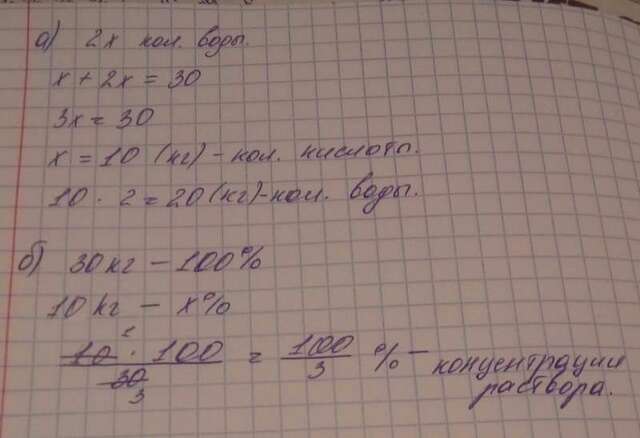 а) 2x кол. воды.
x + 2x = 30
3x = 30
x = 10 (кг) - кол. кислоты.
10 · 2 = 20 (кг) - кол. воды.
б) 30 кг - 100%
10 кг - x%
10 1 · 100 / 30 3 = 100/3 % - концентрации
раствора.